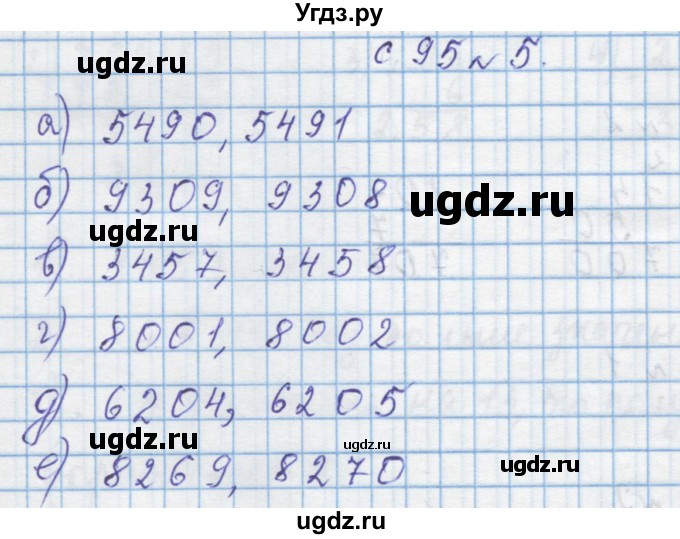 Угдз.ру
с 95 № 5.
ugdz.ru
а) 5490, 5491
б) 9309, 9308
ugdz.ru
ugdz.ru
в) 3457, 3458
г) 8001, 8002
д) 6204, 6205
ugdz.ru
ugdz.ru
е) 8269, 8270
ugdz.ru
ugdz.ru